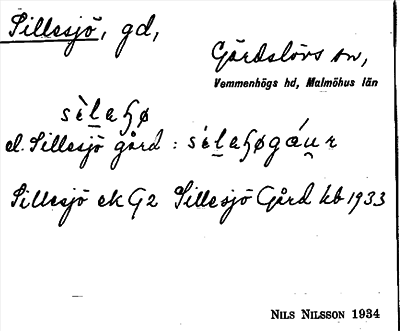 Sillesjö, gd,
Gärdslövs sn,
Vemmenhögs hd, Malmöhus län
el. Sillesjö gård :
Sillesjö ek G2 Sillesjö Gård kb 1933
NILS NILSSON 1934